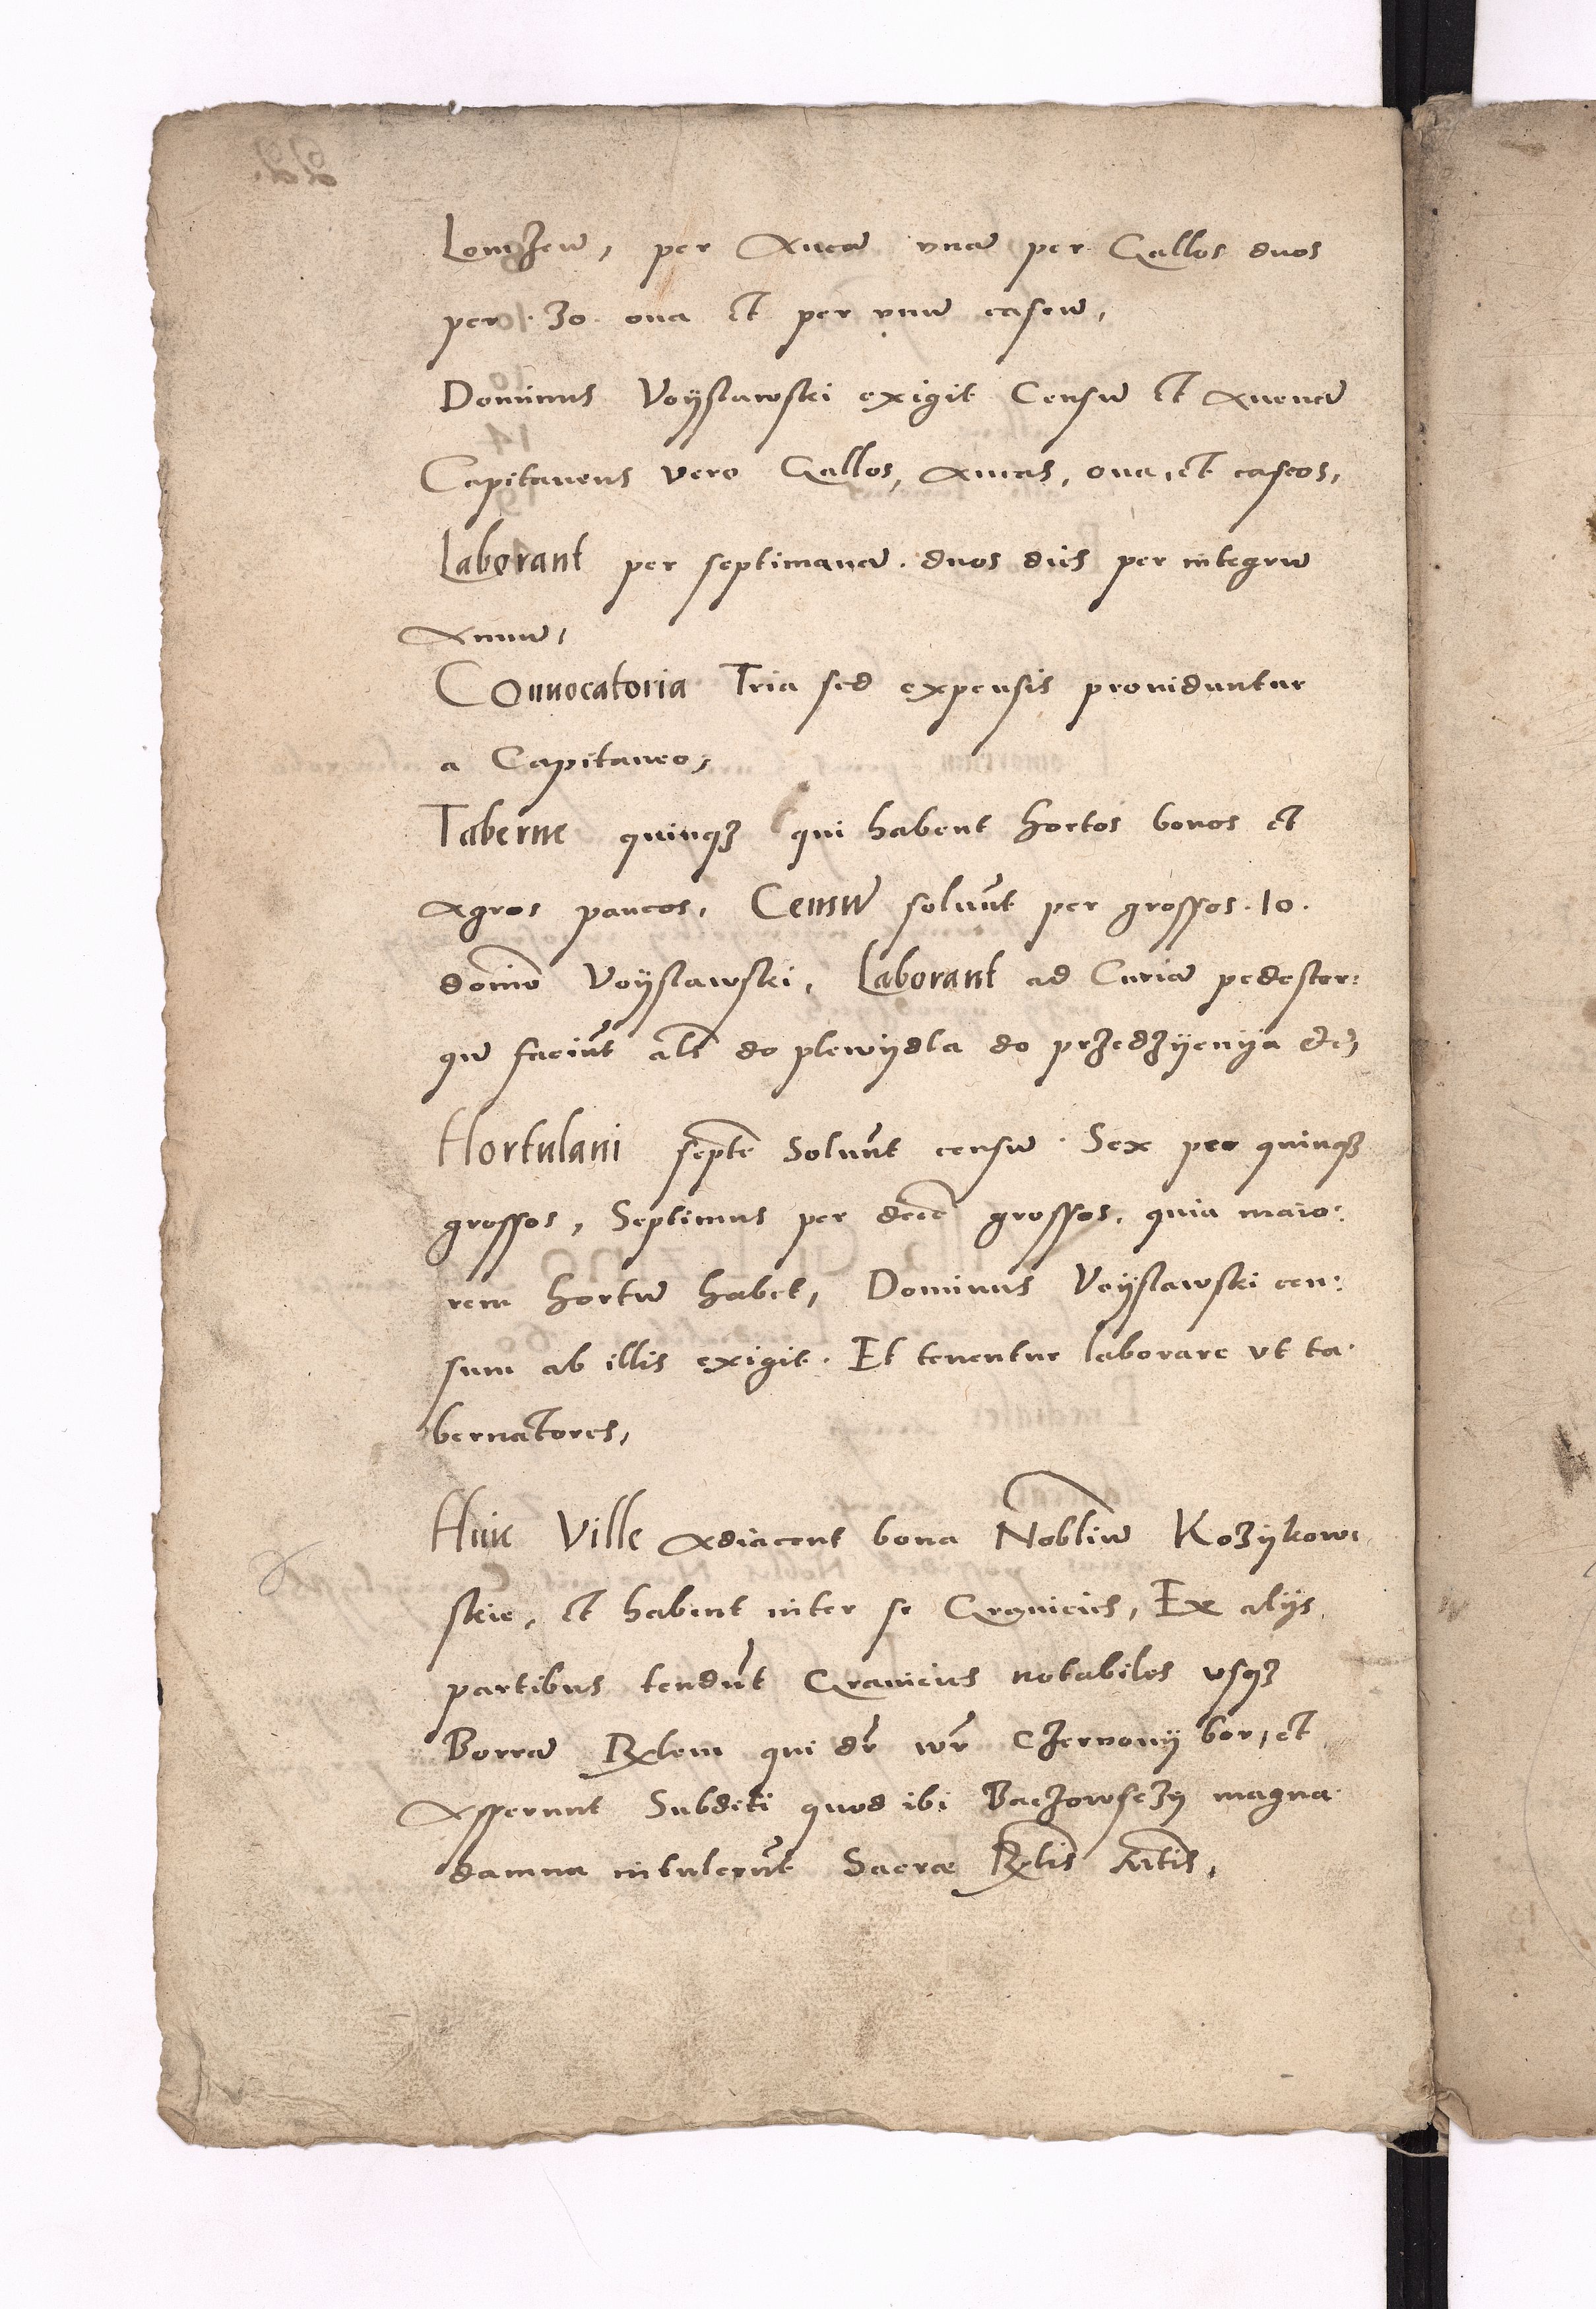 Lomzen, per Aucã vnã per Gallos duos
per 30 oua et per vnũ caseũ,
Dominus Voyslawski exigit Censũ et Auenã
Capitaneus vero Gallos, Aucas, oua, et caseos,
Laborant per septimanã. duos dies per integrũ
Annũ,
Conuocatoria Tria sed expensis prouiduntur
a Capitaneo,
Taberne quinqꝫ qui habent hortos bonos et
Agros paucos, Censũ soluũt per grossos .10.
domĩo Voyslawski, Laborant ad Curiã pedester:
qũ faciũt als do plewydla do przedzyenya
Hortulani septẽ Soluũt censũ. Sex per quinqꝫ
grossos, Septimus per decẽ grossos, quia maio:
rem hortũ habet, Dominus Voyslawski cen:
sum ab illis exigit. Et tenentur laborare vt ta:
bernatores,
Huic Ville Adiacent bona Nobliũ Kozykow:
skie, et habent inter se Granicies, Ex alys
partibus tendũt Granicies notabiles vsqꝫ
Borrã Rlem qui dr wr Czerwony bor, et
Asserunt Subditi quod ibi Baczowsczy magna
damna intulerũt Sacræ Rlis Mtis,